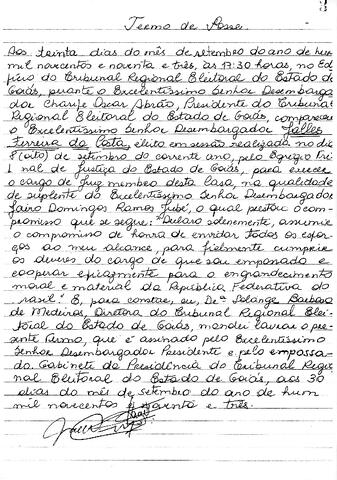 Termo de Posse.
Aos trinta dias do mês de setembro do ano de hum
mil novecentos e noventa e três, às 17:30 horas, no Ed
fício do Tribunal Regional Eleitoral do Estado de
Goiás, perante o Excelentíssimo Senhor Desembarga
dor Charife Oscar Abrão, Presidente do Tribunal
Regional Eleitoral do Estado de Goiás, compareceu
o Excelentíssimo Senhor Desembargador Jalles
Ferreira da Costa, eleito em sessão realizada no dia
8 (oito) de setembro do corrente ano, pelo Egrégio Tri
nal de Justiça do Estado de Goiás, para exercer
o cargo de Juiz membro desta Casa, na qualidade
de suplente do Excelentíssimo Senhor Desembargador
Jairo Domingos Ramos Jubé, o qual prestou o com
promisso que se segue: "Declaro solenemente, assumir
o compromisso de honra de envidar todos os esfor
ços ao meu alcance, para fielmente cumprir
os deveres do cargo de que sou empossado e
cooperar eficazmente para o engrandecimento
moral e material da República Federativa do
rasil". E, para constar, eu, Solange Barbosa
de Medeiros, Diretora do Tribunal Regional Elei-
toral do Estado de Goiás, mandei lavrar o pre-
sente termo, que é assinado pelo Excelentíssimo
Senhor Desembargador Presidente e pelo empossa-
do. Gabinete da Presidência do Tribunal Regio
nal Eleitoral do Estado de Goiás, aos 30
dias do mês de setembro do ano de hum
mil novecentos e noventa e três.